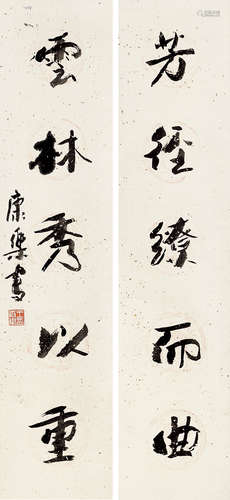 芳徑繚而曲
雲林秀以重
康樂書